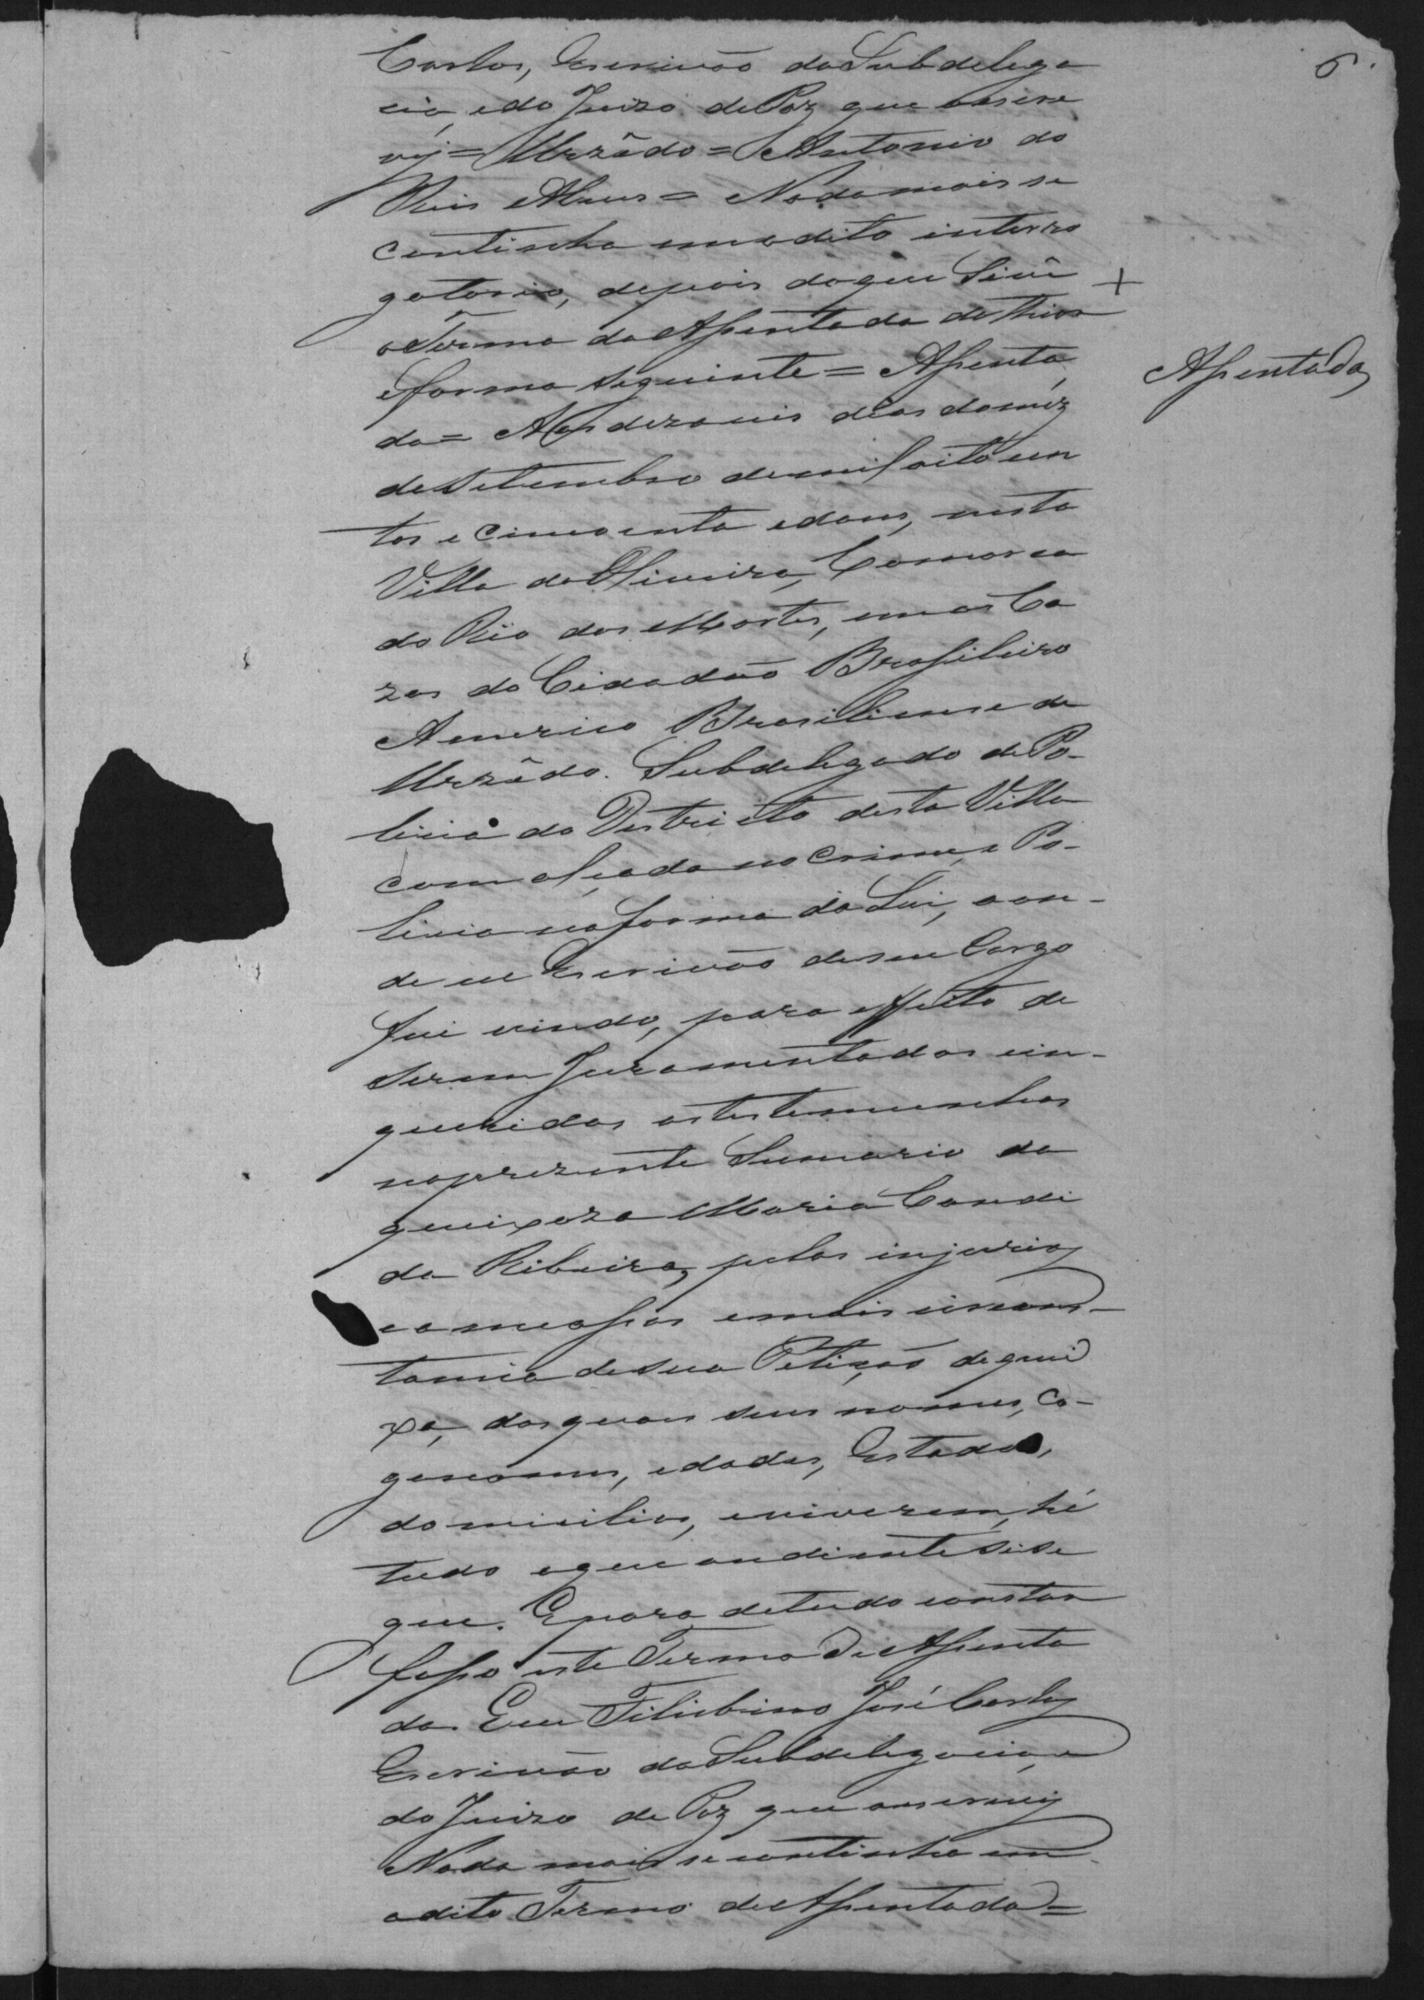 6
Carlos, Escrivão da Subdelega
cia, e do Juizo de Paz que o escre
vý = Urzêdo = Antonio do
Reis Alves = Nada mais se
continha em o dito interro
gatorio, depois do que Sevê
o Termo da Assentada do thior
e forma seguinte = Assenta
Assentada
da = Aos dezaceis dias do mêz
de Setembro de mil oito cen
tos e cincoenta e dous, nesta
Villa da Oliveira, Comarca
do Rio das Mortes, em as Ca
zas do Cidadão Brasileiro
Americo Brasiliense de
Urzêdo. Subdelegado de Po-
licia do Destricto desta Villa
com alçada no Crime, e Po-
licia na forma da Lei, aon-
de eu Escrivão de seu Cargo
fui vindo, para effeito de
serem Juramentadas e in-
queridas as testemunhas
no prezente Sumario da
queixoza Maria Candi
da Ribeira, pelas injurias
e ameassas e mais circons-
tancia de sua Petição de quei
xa, das quais seus nomes, co-
genomes, edades, Estados,
domicilios, e viverem, hé
tudo o que an diente se se
gue. E para de tudo constar
fasso este Termo de Assenta
da. Eu Filisbino José Carlos
Escrivão da Subdelegacia, e
do Juizo de Paz que o escrevy
Nada mais se continha em
o dito Termo de Assentada =